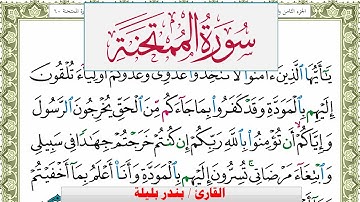 الجزء الثامن
الممتحنة ٦٠
سورة الممتحنة
يَٰٓأَيُّهَا ٱلَّذِينَ ءَامَنُوا۟ لَا تَتَّخِذُوا۟ عَدُوِّى وَعَدُوَّكُمْ أَوْلِيَآءَ تُلْقُونَ
إِلَيْهِم بِٱلْمَوَدَّةِ وَقَدْ كَفَرُوا۟ بِمَا جَآءَكُم مِّنَ ٱلْحَقِّ يُخْرِجُونَ ٱلرَّسُولَ
وَإِيَّاكُمْ أَن تُؤْمِنُوا۟ بِٱللَّهِ رَبِّكُمْ إِن كُنتُمْ خَرَجْتُمْ جِهَٰدًا فِى سَبِيلِى
وَٱبْتِغَآءَ مَرْضَاتِى تُسِرُّونَ إِلَيْهِم بِٱلْمَوَدَّةِ وَأَنَا۠ أَعْلَمُ بِمَآ أَخْفَيْتُمْ
القارئ / بندر بليلة